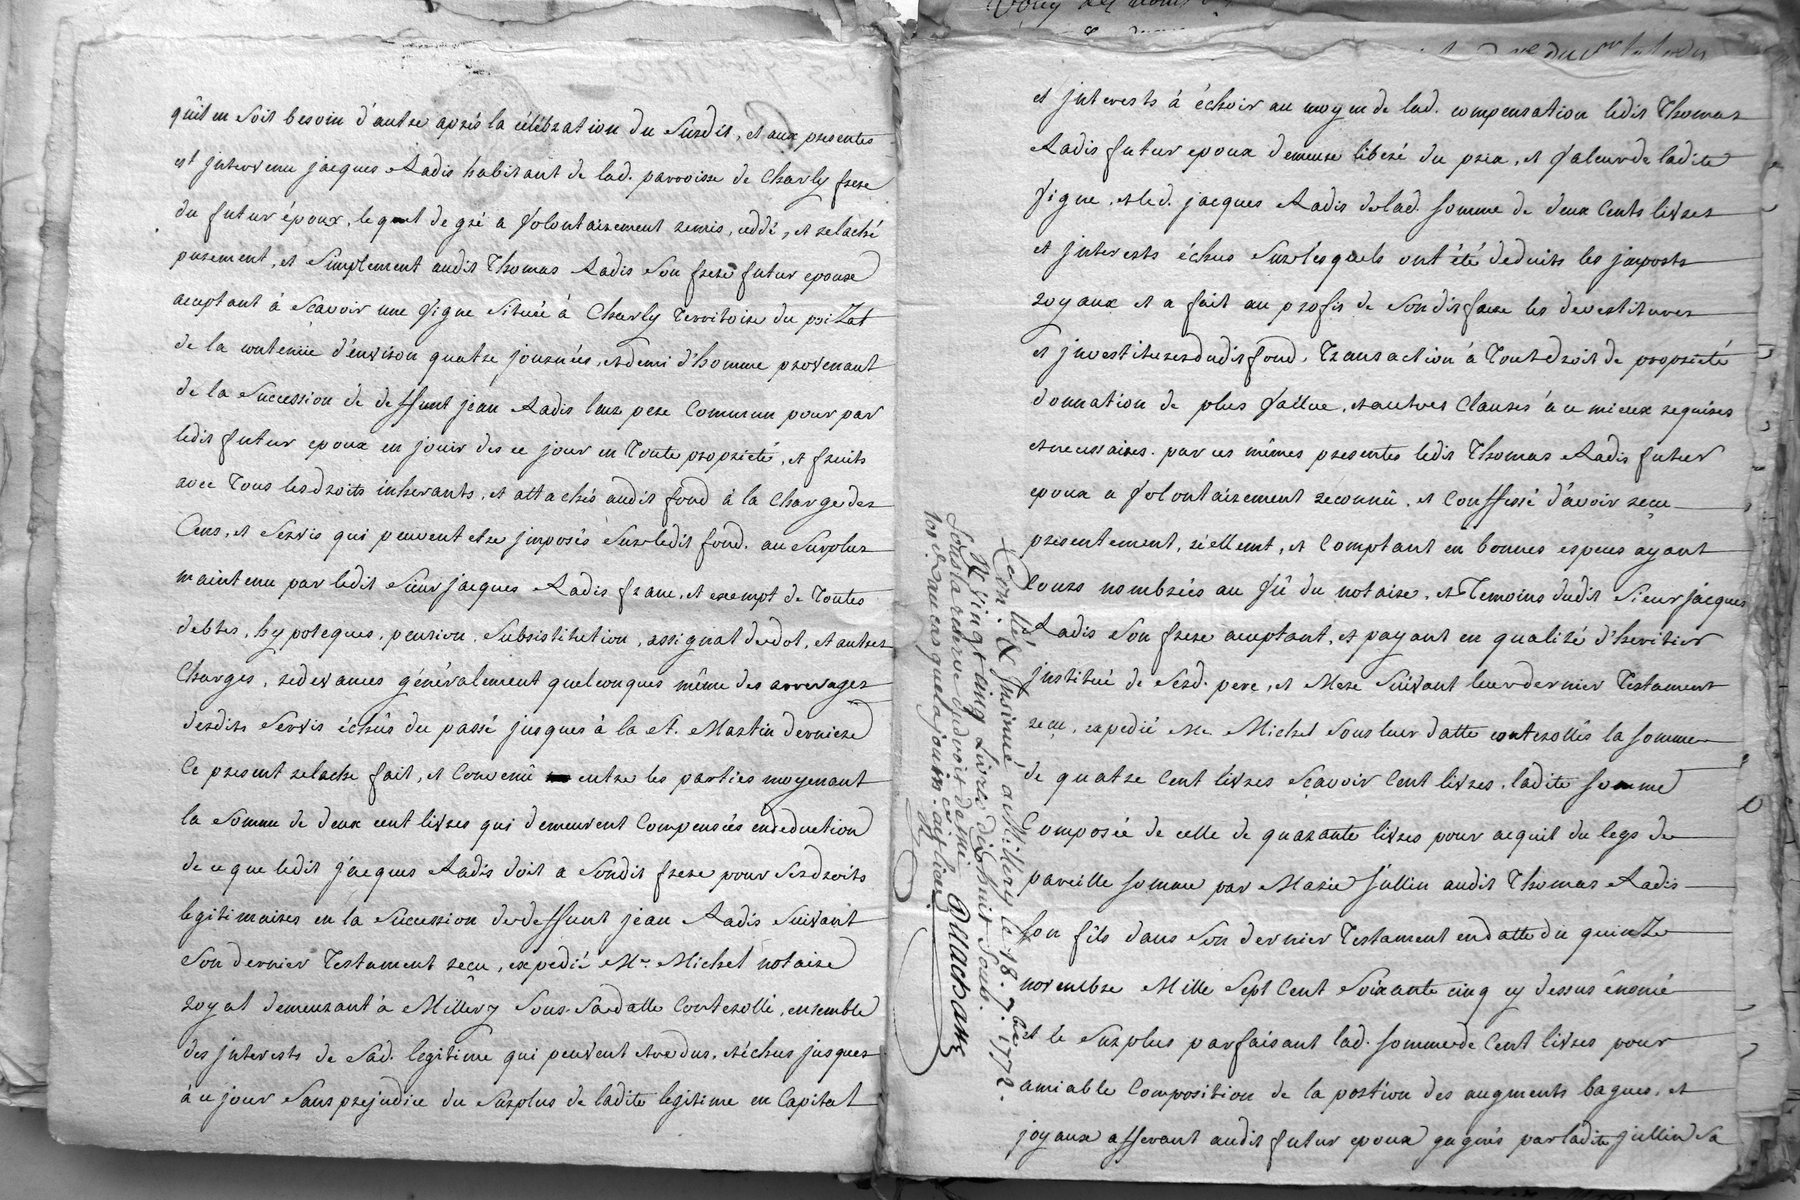 qu'il en soit besoin d'autre après la célébration du susdit, et aux presentes
est jntervenu jacques Radis habitant de lad. parroisse de Charly frere
du futur époux, lequel de gré a volontairement remis, ceddé, et relaché
purement, et simplement audit Thomas Radis son frere futur epoux
aceptant à sçavoir une vigne située à Charly Territoire du poiZat
de la contenüe d'environ quatre journées, et demi d'homme provenant
de la sucession de deffunt jean Radis leur pere Commun pour par
ledit futur epoux en jouir des ce jour en Toute proprieté, et fruits
avec Tous les droits inherants, et attachés audit fond à la charge des
Cens, et servis qui peuvent etre jmposés sur ledit fond. au surplus
maintenu par ledit sieur jacques Radis franc, et exempt de Toutes
debtes, hypoteques, pension, subsistitution, assignat de dot, et autres
Charges, redevances généralement quelconques même des arrerages
desdits servis échûs du passé jusques à la st. Martin derniere
Ce present relache fait, et Convenû entre les parties moyenant
la somme de deux cent livres qui demeurent Compensées en deduction
de ce que ledit jacques Radis doit a sondit frere pour ses droits
legitimaires en la sucession de deffunt jean Radis suivant
son dernier Testament reçu, expedié Me. Michel notaire
royal demeurant à Millery sous sa datte Controllé, ensemble
des jnterests de sad. legitime qui peuvent etre dus, et échus jusques
à ce jour sans prejudice du surplus de ladite legitime en Capital
et jnterests à échoir au moyen de lad. compensation ledit Thomas
Radis futur epoux demeure liberé du prix, et valeur de ladite
vigne, et led. jacques Radis de lad. somme de deux Cents livres
et jnterests échus sur lesquels ont été deduits les jmposts
royaux et a fait au profit de sondit frere les devestitures
et jnvestitures dudit fond, Transaction à Tout droit de proprieté
donnation de plus vallue, et autres Clauses à ce mieux requises
et necessaires. par ces mêmes presentes ledit Thomas Radis futur
epoux a volontairement reconnû, et Confessé d'avoir reçu
presentement, réellemt, et Comptant en bonnes especes ayant
Cours nombrées au vû du notaire, et Temoins dudit sieur jacques
Radis son frere aceptant, et payant en qualité d'heritier
jnstitué de sesd. pere, et Mere suivant leur dernier Testament
reçu, expedié Me. Michel sous leur datte controllés la somme
de quatre Cent livres sçavoir Cent livres, ladite somme
Composée de celle de quarante livres pour acquit du legs de
pareille somme par Marie Jullin audit Thomas Radis
son fils dans son dernier Testament en datte du quinZe
novembre Mille sept Cent soixante cinq cy dessus énoncé
et le surplus parfaisant lad. somme de Cent livres pour
amiable Composition de la portion des augments bagues, et
joyaux afferant audit futur epoux gagnés par ladite jullin sa
Con. llé, & Jnsinué a Millery le 18. 7bre. 1772.
R. vingt cinq livres dix huit sous.
sous la reserve du droit de mi
100. d. ran en quel a joüi. ce ast lieu.